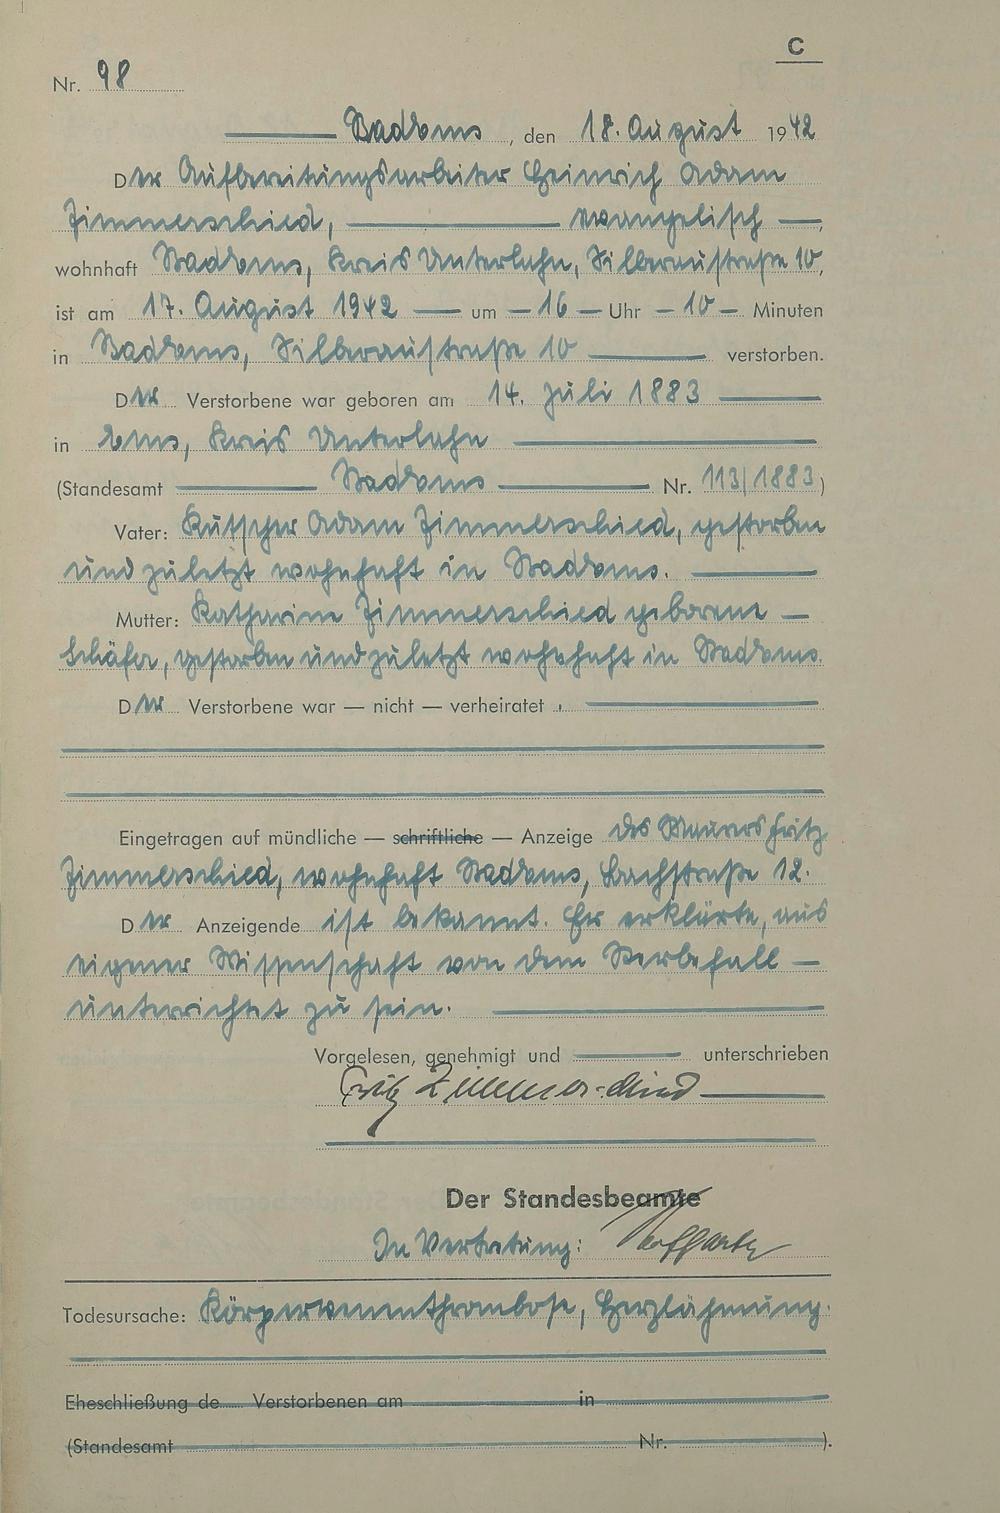 C
Nr. 98
Bad Ems, den 18. August 1942
Der Aufbereitungsarbeiter Heinrich Adam
Zimmerschied, evangelisch,
wohnhaft Bad Ems, Kreis Unterlahn, Silberaustraße 10,
ist am 17. August 1942 um 16 Uhr 10 Minuten
in Bad Ems, Silberaustraße 10 verstorben.
Der Verstorbene war geboren am 14. Juli 1883
in Ems, Kreis Unterlahn
(Standesamt Bad Ems Nr. 113/1883)
Vater: Kutscher Adam Zimmerschied, gestorben
und zuletzt wohnhaft in Bad Ems.
Mutter: Katharine Zimmerschied geborene
Schäfer, gestorben und zuletzt wohnhaft in Bad Ems.
Der Verstorbene war — nicht — verheiratet.
Eingetragen auf mündliche — schriftliche — Anzeige des Maurers Fritz
Zimmerschied, wohnhaft Bad Ems, Bachstraße 12.
Der Anzeigende ist bekannt. Er erklärte, aus
eigener Wissenschaft von dem Sterbefall
unterrichtet zu sein.
Vorgelesen, genehmigt und unterschrieben
Fritz Zimmerschied
Der Standesbeamte
In Vertretung:
Todesursache: Herzlähmung.
Eheschließung de Verstorbenen am in
(Standesamt Nr. ).